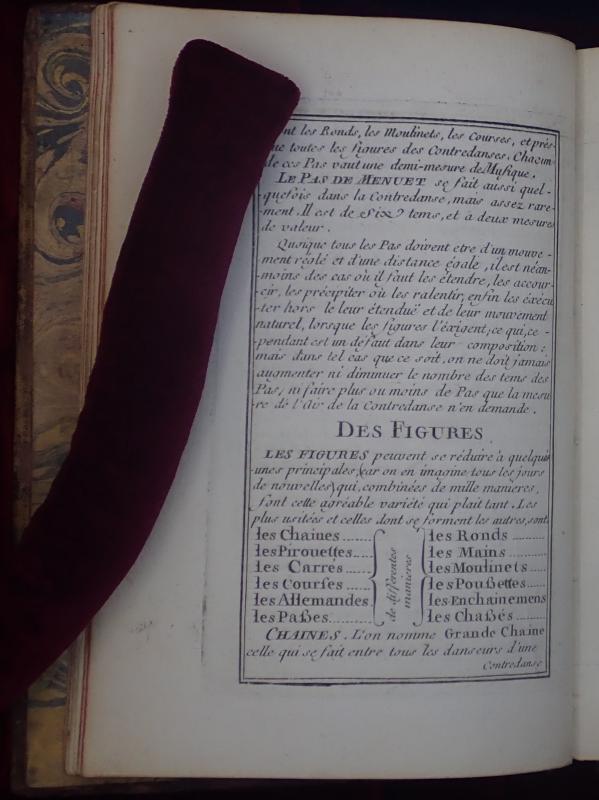 nt les Ronds, les Moulinets, les Courses, et près-
ue toutes les figures des Contredanses. Chacun
de ces Pas vaut une demi-mesure de Musique.
LE PAS DE MENUET se fait aussi quel-
quefois dans la Contredanse, mais assez rare-
ment. Il est de Six tems, et à deux mesures
de valeur.
Quoique tous les Pas doivent etre d'un mouve-
ment réglé et d'une distance égale, il est néan-
moins des cas où il faut les étendre, les accour-
cir, les précipiter où les ralentir, enfin les éxécu
ter hors le leur étenduë et de leur mouvement
naturel, lorsque les figures l'éxigent; ce qui, ce-
pendant est un défaut dans leur composition:
mais dans tel cas que ce soit, on ne doit jamais
augmenter ni diminuer le nombre des tems des
Pas, ni faire plus ou moins de Pas que la mesu
re de l'Air de la Contredanse n'en demande.
DES FIGURES
LES FIGURES peuvent se réduire à quelqu'
unes principales, car on en imagine tous les jours
de nouvelles qui, combinées de mille manieres,
font cette agréable variété qui plait tant. Les
plus usitées et celles dont se forment les autres, sont
les Chaines......
les Pirouettes....
les Carrés......
les Courses......
les Allemandes
les Paßes.......
de différentes
manieres
les Ronds......
les Mains......
les Moulinets....
les Poußettes....
les Enchainemens
les Chaßés......
CHAINES. L'on nomme Grande Chaine
celle qui se fait entre tous les danseurs d'une
Contredanse